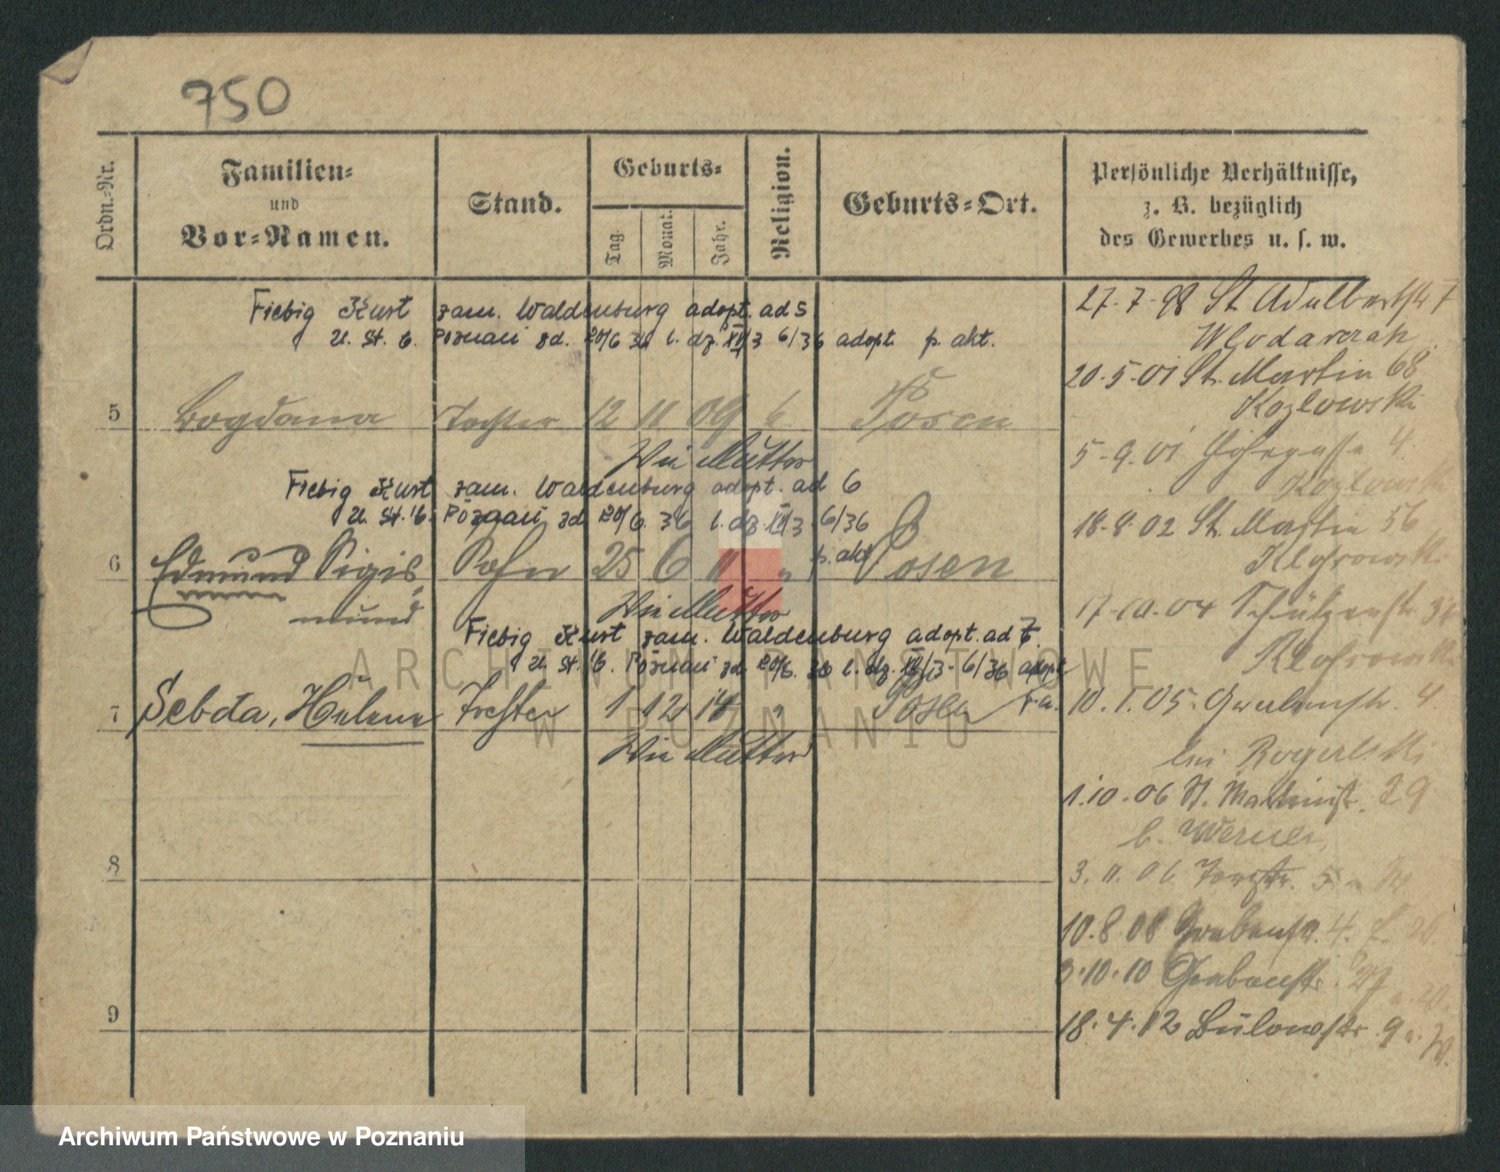 750
Ordn.-Nr.
Familien-
und
Vor-Namen.
Stand.
Geburts-
Tag.
Monat.
Jahr.
Religion.
Geburts-Ort.
Persönliche Verhältnisse,
z. B. bezüglich
des Gewerbes u. s. w.
Fiebig Kurt zam. Waldenburg adopt. ad 5
U. St. 6. Poznań zd. 20/6 36 l. dz. 6/36 adopt. p. akt.
5 Bogdana Tochter 12 11 09 Posen
Wie Mutter
Fiebig Kurt zam. Waldenburg adopt. ad 6
U. St. 6. Poznań zd. 20/6. 36 l. dz. 6/36
p. akt
6 Edmund Sigis Sohn 25 6 11 " Posen
mund
Wie Mutter
Fiebig Kurt zam. Waldenburg adopt. ad 7
U. St. 6. Poznań zd. 20/6. 36 l. dz. 6/36 adopt
7 Sebda, Helene Tochter 1 12 14 " Posen
Wie Mutter
8
9
27-7-98 St. Adalbertstr 7
Wlodarczak
20-5-01 St. Martin 68
Kozlowski
5-9.01 4.
Kozlowski
18-8-02 St. Martin 56
17-10-04 Schützenstr
10.1.05. Grabenstr. 4
bei
1.10.06 St. Martinstr. 29
b. Werner
3.11.06
10.8 08 Grabenstr. 4.
3.10.10 Grabenstr.
18.4.12 Bülowstr. 9
ARCHIWUM PAŃSTWOWE
W POZNANIU
Archiwum Państwowe w Poznaniu